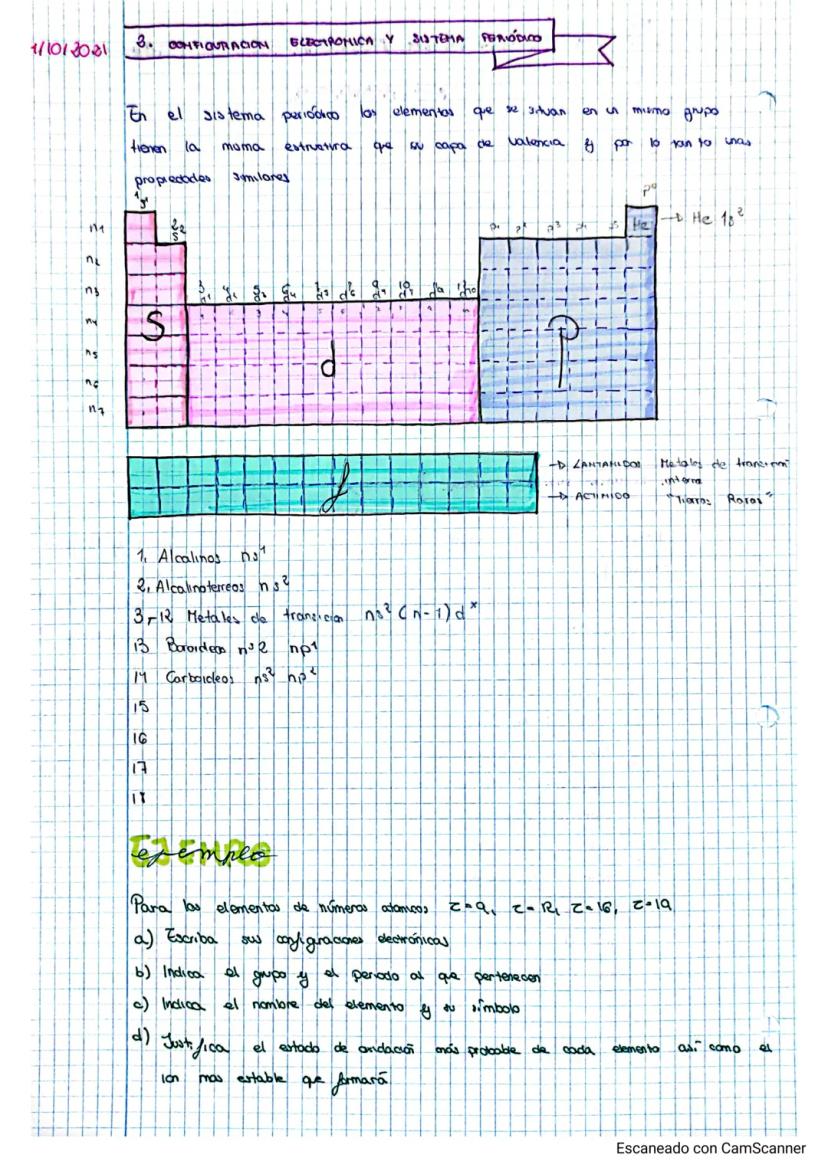 1/10/2021
3. CONFIGURACION ELECTRONICA Y SISTEMA PERIÓDICO
En el sistema periódico los elementos que se situan en un mismo grupo
tienen la misma estructura que su capa de valencia y por lo tanto unas
propiedades similares
s¹ p⁶
n1 He → He 1s²
2 s² p¹ p² p³
n2
n3
n4 S d P
n5
n6
n7
f
→ LANTANIDOS Metales de transición
interna
→ ACTINIDO "Tierras Raras"
1. Alcalinos ns¹
2. Alcalinoterreos ns²
3-12 Metales de transicion ns² (n-1)dˣ
13 Boroideos ns2 np¹
14 Carboideos ns² np²
15
16
17
18
Ejemplo
Para los elementos de números atomicos Z=9, Z=12, Z=16, Z=19
a) Escriba sus configuraciones electrónicas
b) Indica el grupo y el periodo al que pertenecen
c) Indica el nombre del elemento y su símbolo
d) Justifica el estado de oxidación más probable de cada elemento así como el
ion mas estable que formará
Escaneado con CamScanner